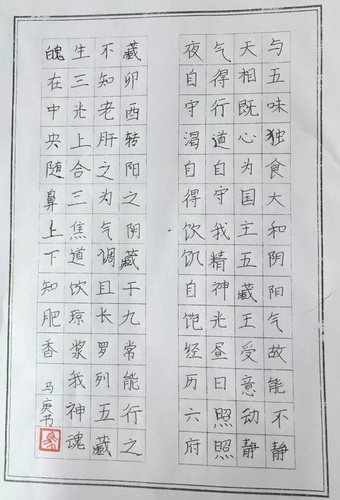 与五味独食大和阴阳气故能不静
天相既心为国主五藏王受意动静
气得行道自守我精神光昼日照照
夜自守渴自得饮饥自饱经历六府
藏卯酉转阳之阴藏于九常能行之
不知老肝之为气调且长罗列五藏
生三光上合三焦道饮琼浆我神魂
魄在中央随鼻上下知肥香
马庚书